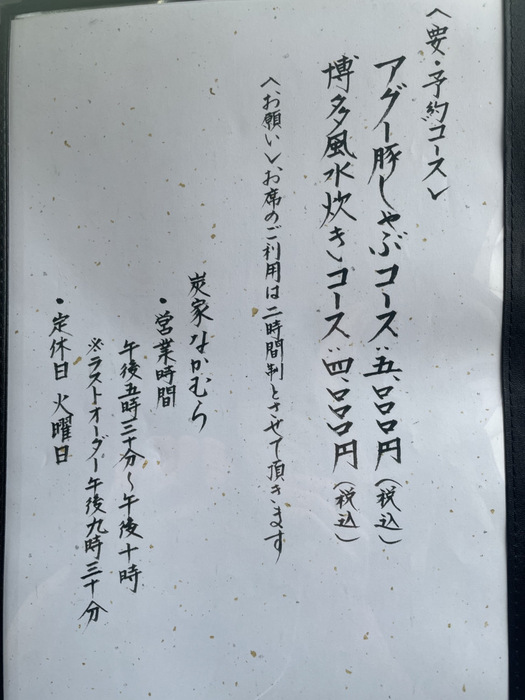 〈要・予約コース〉
アグー豚しゃぶコース…五、〇〇〇円(税込)
博多風水炊きコース…四、〇〇〇円(税込)
〈お願い〉お席のご利用は二時間制とさせて頂きます
炭家なかむら
・営業時間
午後五時三十分～午後十時
※ラストオーダー午後九時三十分
・定休日 火曜日